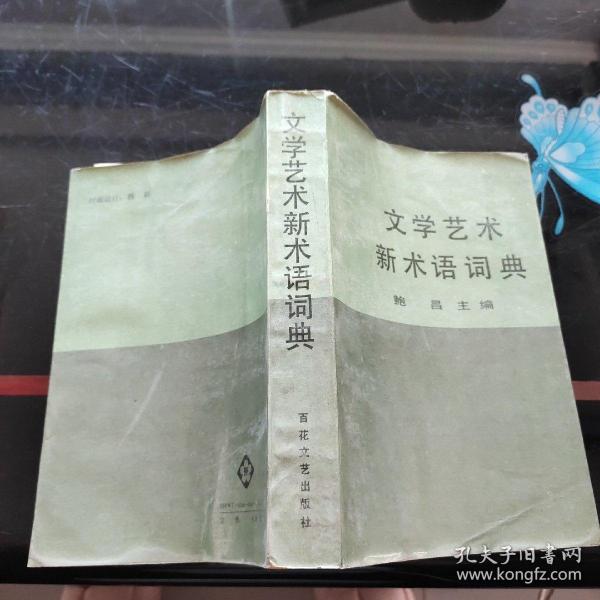 文学艺术
新术语词典
鲍昌主编
文学艺术新术语词典
百花文艺出版社
封面设计：
孔夫子旧书网
www.kongfz.com